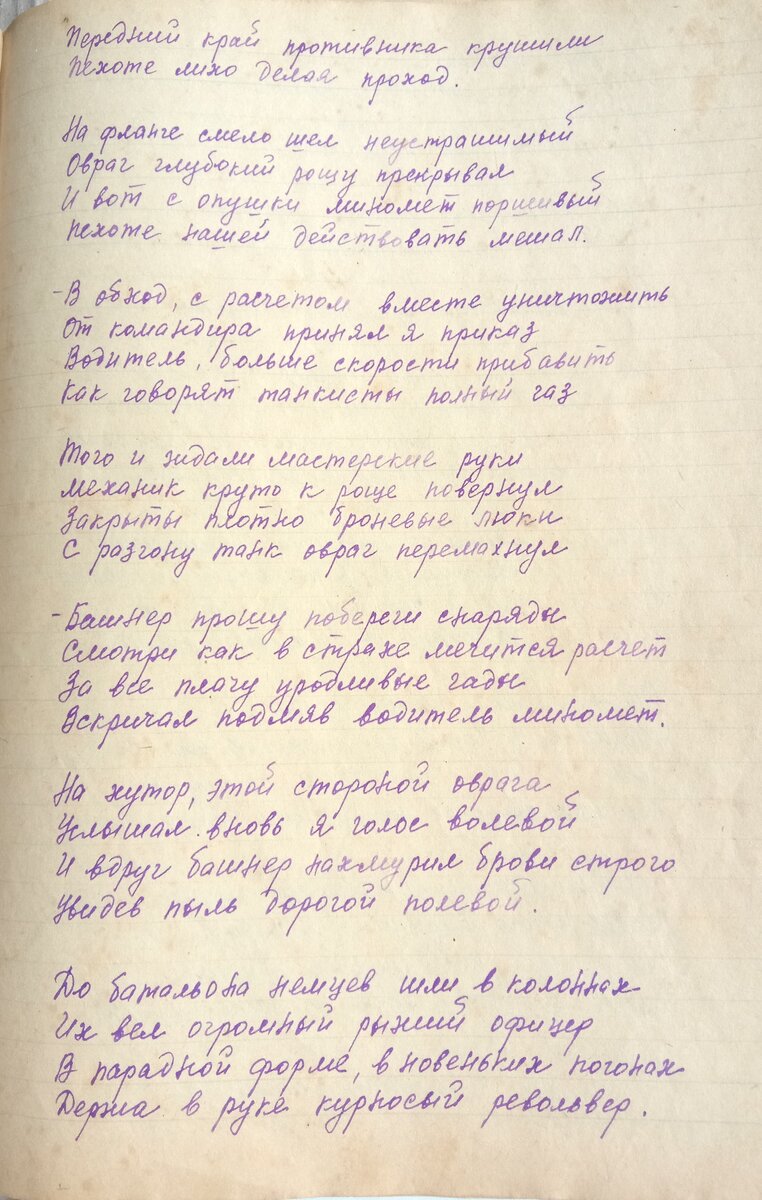 Передний край противника крушили
Пехоте лихо делая проход.
На фланге смело шел неустрашимый
Овраг глубокий рощу прекрывал
И вот с опушки миномет паршивый
Пехоте нашей действовать мешал.
-В обход, с расчетом вместе уничтожить
От командира принял я приказ
Водитель, больше скорости прибавить
Как говорят танкисты полный газ
Того и ждали мастерские руки
Механик круто к роще повернул
Закрыты плотно броневые люки
С разгону танк овраг перемахнул
-Башнер прошу побереги снаряды
Смотри как в страхе мечится расчет
За все плачу уродливые гады
Вскричал подмяв водитель миномет.
На хутор, этой стороной оврага
Услышал вновь я голос волевой
И вдруг башнер нахмурил брови строго
Увидев пыль дорогой полевой.
До батальона немцев шли в колоннах
Их вел огромный рыжий офицер
В парадной форме, в новеньких погонах
Держа в руке курносый револьвер.